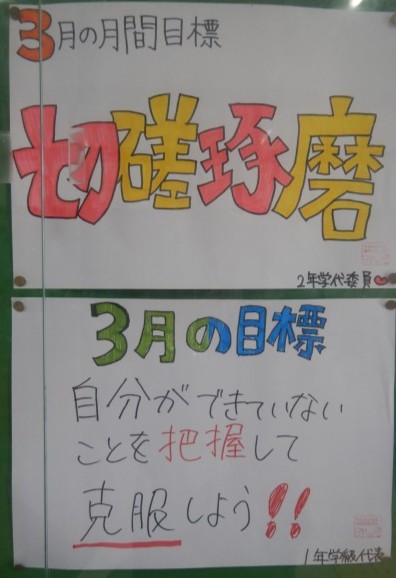 3月の月間目標
切磋琢磨
2年学代委員
3月の目標
自分ができていない
ことを把握して
克服しよう!!
1年学級代表